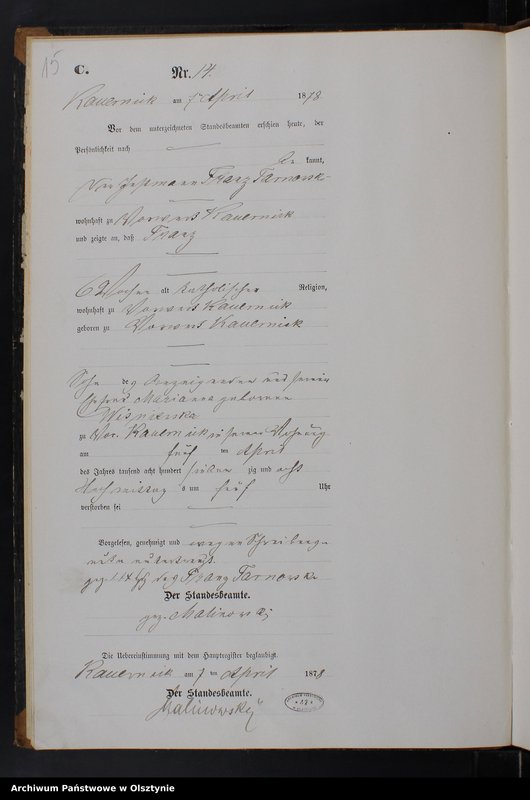 15
C.
Nr. 14.
Kauernick am 7 April 1878
Vor dem unterzeichneten Standesbeamten erschien heute, der
Persönlichkeit nach
be kannt,
der Franz Tarnowsk
wohnhaft zu Vorwerk Kauernick
und zeigte an, daß Franz
6 Wochen alt katholischer Religion,
wohnhaft zu Vorwerk Kauernick
geboren zu Vorwerk Kauernick
Sohn des Anzeigenden und seiner
Ehefrau Marianna geborenen
Wisniewska
zu Vor. Kauernick in seiner Wohnung
am fünf ten April
des Jahres tausend acht hundert sieben zig und acht
Nachmittag s um fünf Uhr
verstorben sei
Vorgelesen, genehmigt und wegen Schreibens-
unterkreuzt
gez. +++ des Franz Tarnowski
Der Standesbeamte.
gez. Malinowski
Die Uebereinstimmung mit dem Hauptregister beglaubigt.
Kauernick am 7 ten April 1878
Der Standesbeamte.
Malinowski
Archiwum Państwowe w Olsztynie